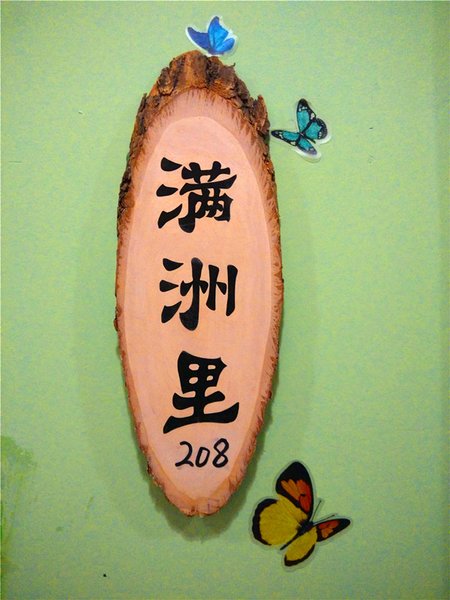 满洲里
208